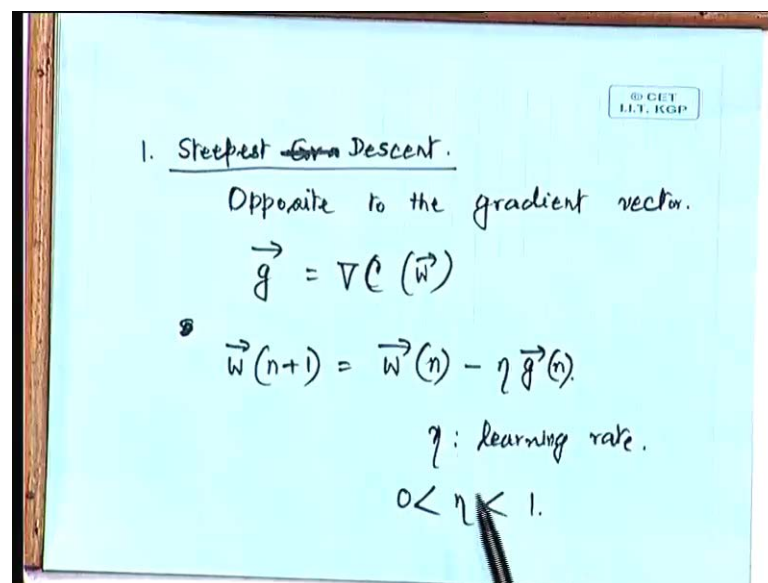 © CET
I.I.T. KGP
1. Steepest Descent.
Opposite to the gradient vector.
g⃗ = ∇C (w⃗)
w⃗(n+1) = w⃗(n) - η g⃗(n).
η : learning rate.
0 < η < 1.